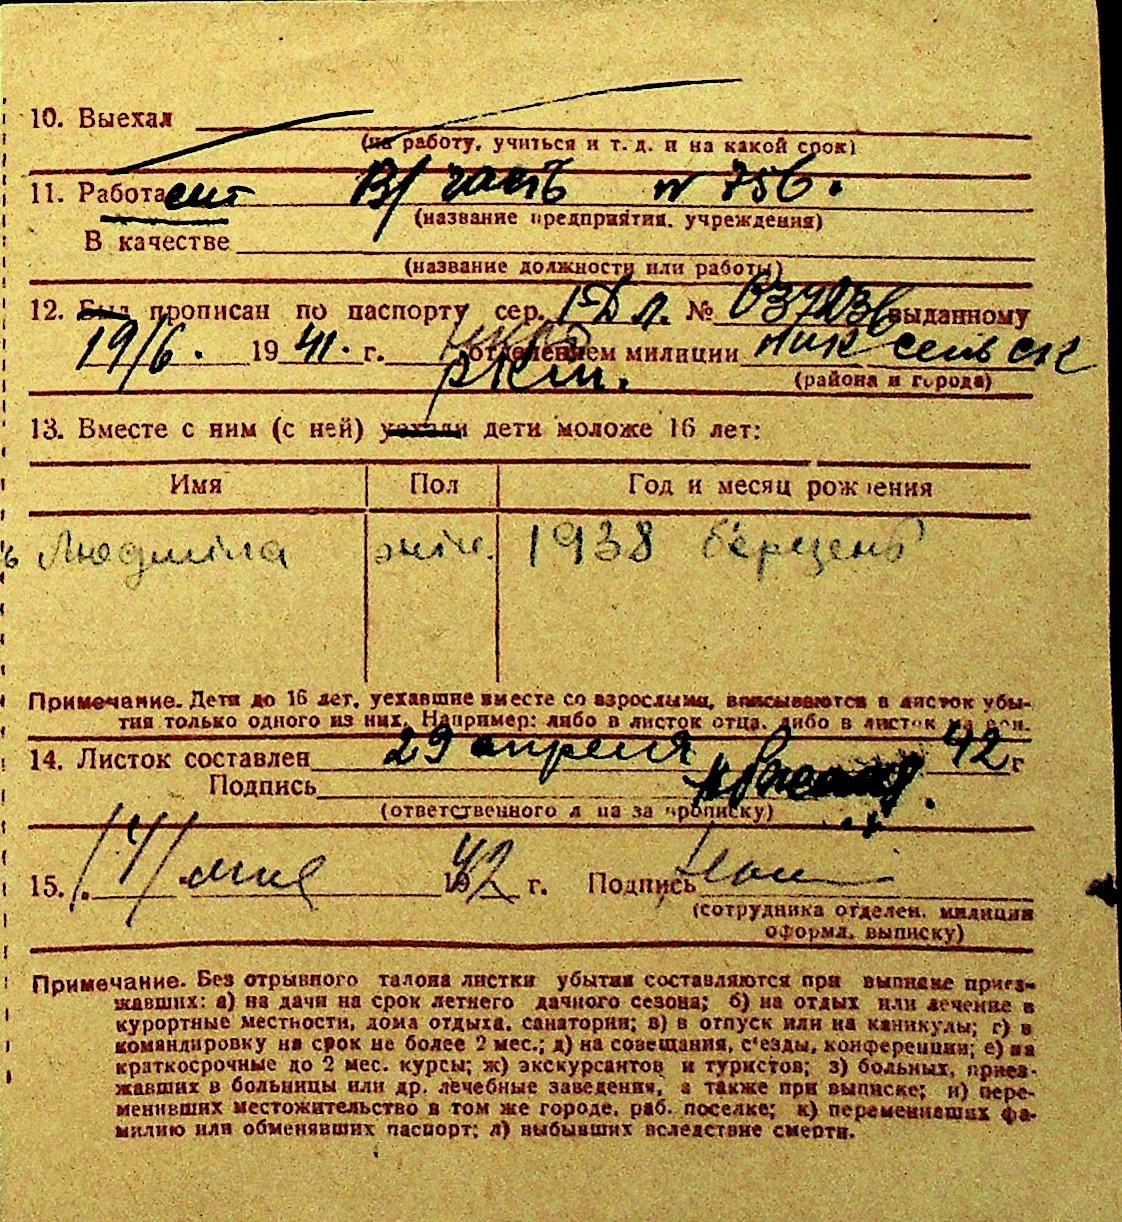 10. Выехал
(на работу, учиться и т. д. и на какой срок)
11. Работает В/часть № 756.
(название предприятия, учреждения)
В качестве
(название должности или работы)
12. Был прописан по паспорту сер. № выданному
19/6. 1941. г. НКВД отделением милиции Ник сельск
РКМ.
(района и города)
13. Вместе с ним (с ней) уехали дети моложе 16 лет:
Имя Пол Год и месяц рождения
Людмила жін. 1938 березень
Примечание. Дети до 16 лет, уехавшие вместе со взрослыми, вписываются в листок убы-
тия только одного из них. Например: либо в листок отца, либо в листок матери.
14. Листок составлен 29 апреля 42 г
Подпись
(ответственного лица за прописку)
15. 14/ мая 1942 г. Подпись
(сотрудника отделен. милиции
оформл. выписку)
Примечание. Без отрывного талона листки убытия составляются при выписке приез-
жавших: а) на дачи на срок летнего дачного сезона; б) на отдых или лечение в
курортные местности, дома отдыха, санатории; в) в отпуск или на каникулы; г) в
командировку на срок не более 2 мес.; д) на совещания, с'езды, конференции; е) на
краткосрочные до 2 мес. курсы; ж) экскурсантов и туристов; з) больных, приез-
жавших в больницы или др. лечебные заведения, а также при выписке; и) пере-
менивших местожительство в том же городе, раб. поселке; к) переменивших фа-
милию или обменявших паспорт; л) выбывших вследствие смерти.